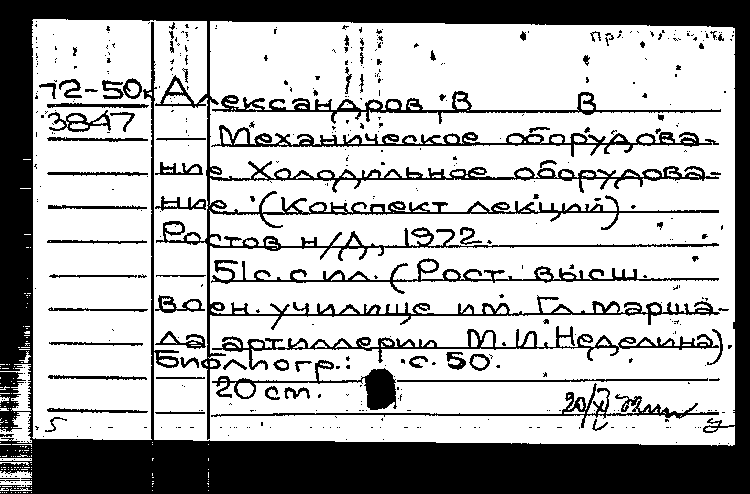 72-50к Александров, В В
3847
Механическое оборудова-
ние. Холодильное оборудова-
ние. (Конспект лекций).
Ростов н/Д., 1972.
51с. с ил. (Рост. высш.
воен. училище им. Гл. марша-
ла артиллерии М.И. Неделина).
Библиогр.: с. 50.
20 см.
5